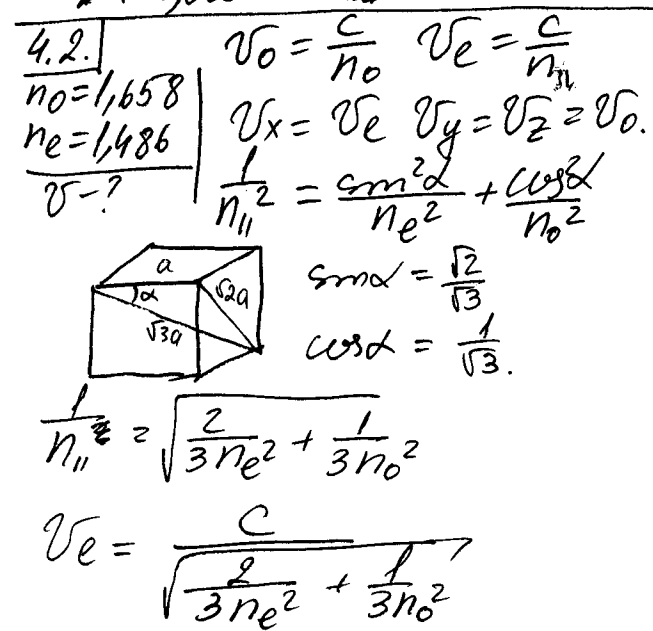 4.2.
n₀ = 1,658
nₑ = 1,486
v - ?
v₀ = c/n₀ vₑ = c/n_∥
vₓ = vₑ v_y = v_z = v₀.
1/n_∥² = sin²α/nₑ² + cos²α/n₀²
a
α
√2a
√3a
sinα = √2/√3
cosα = 1/√3.
1/n_∥ = √(2/3nₑ² + 1/3n₀²)
vₑ = c/√(2/3nₑ² + 1/3n₀²)